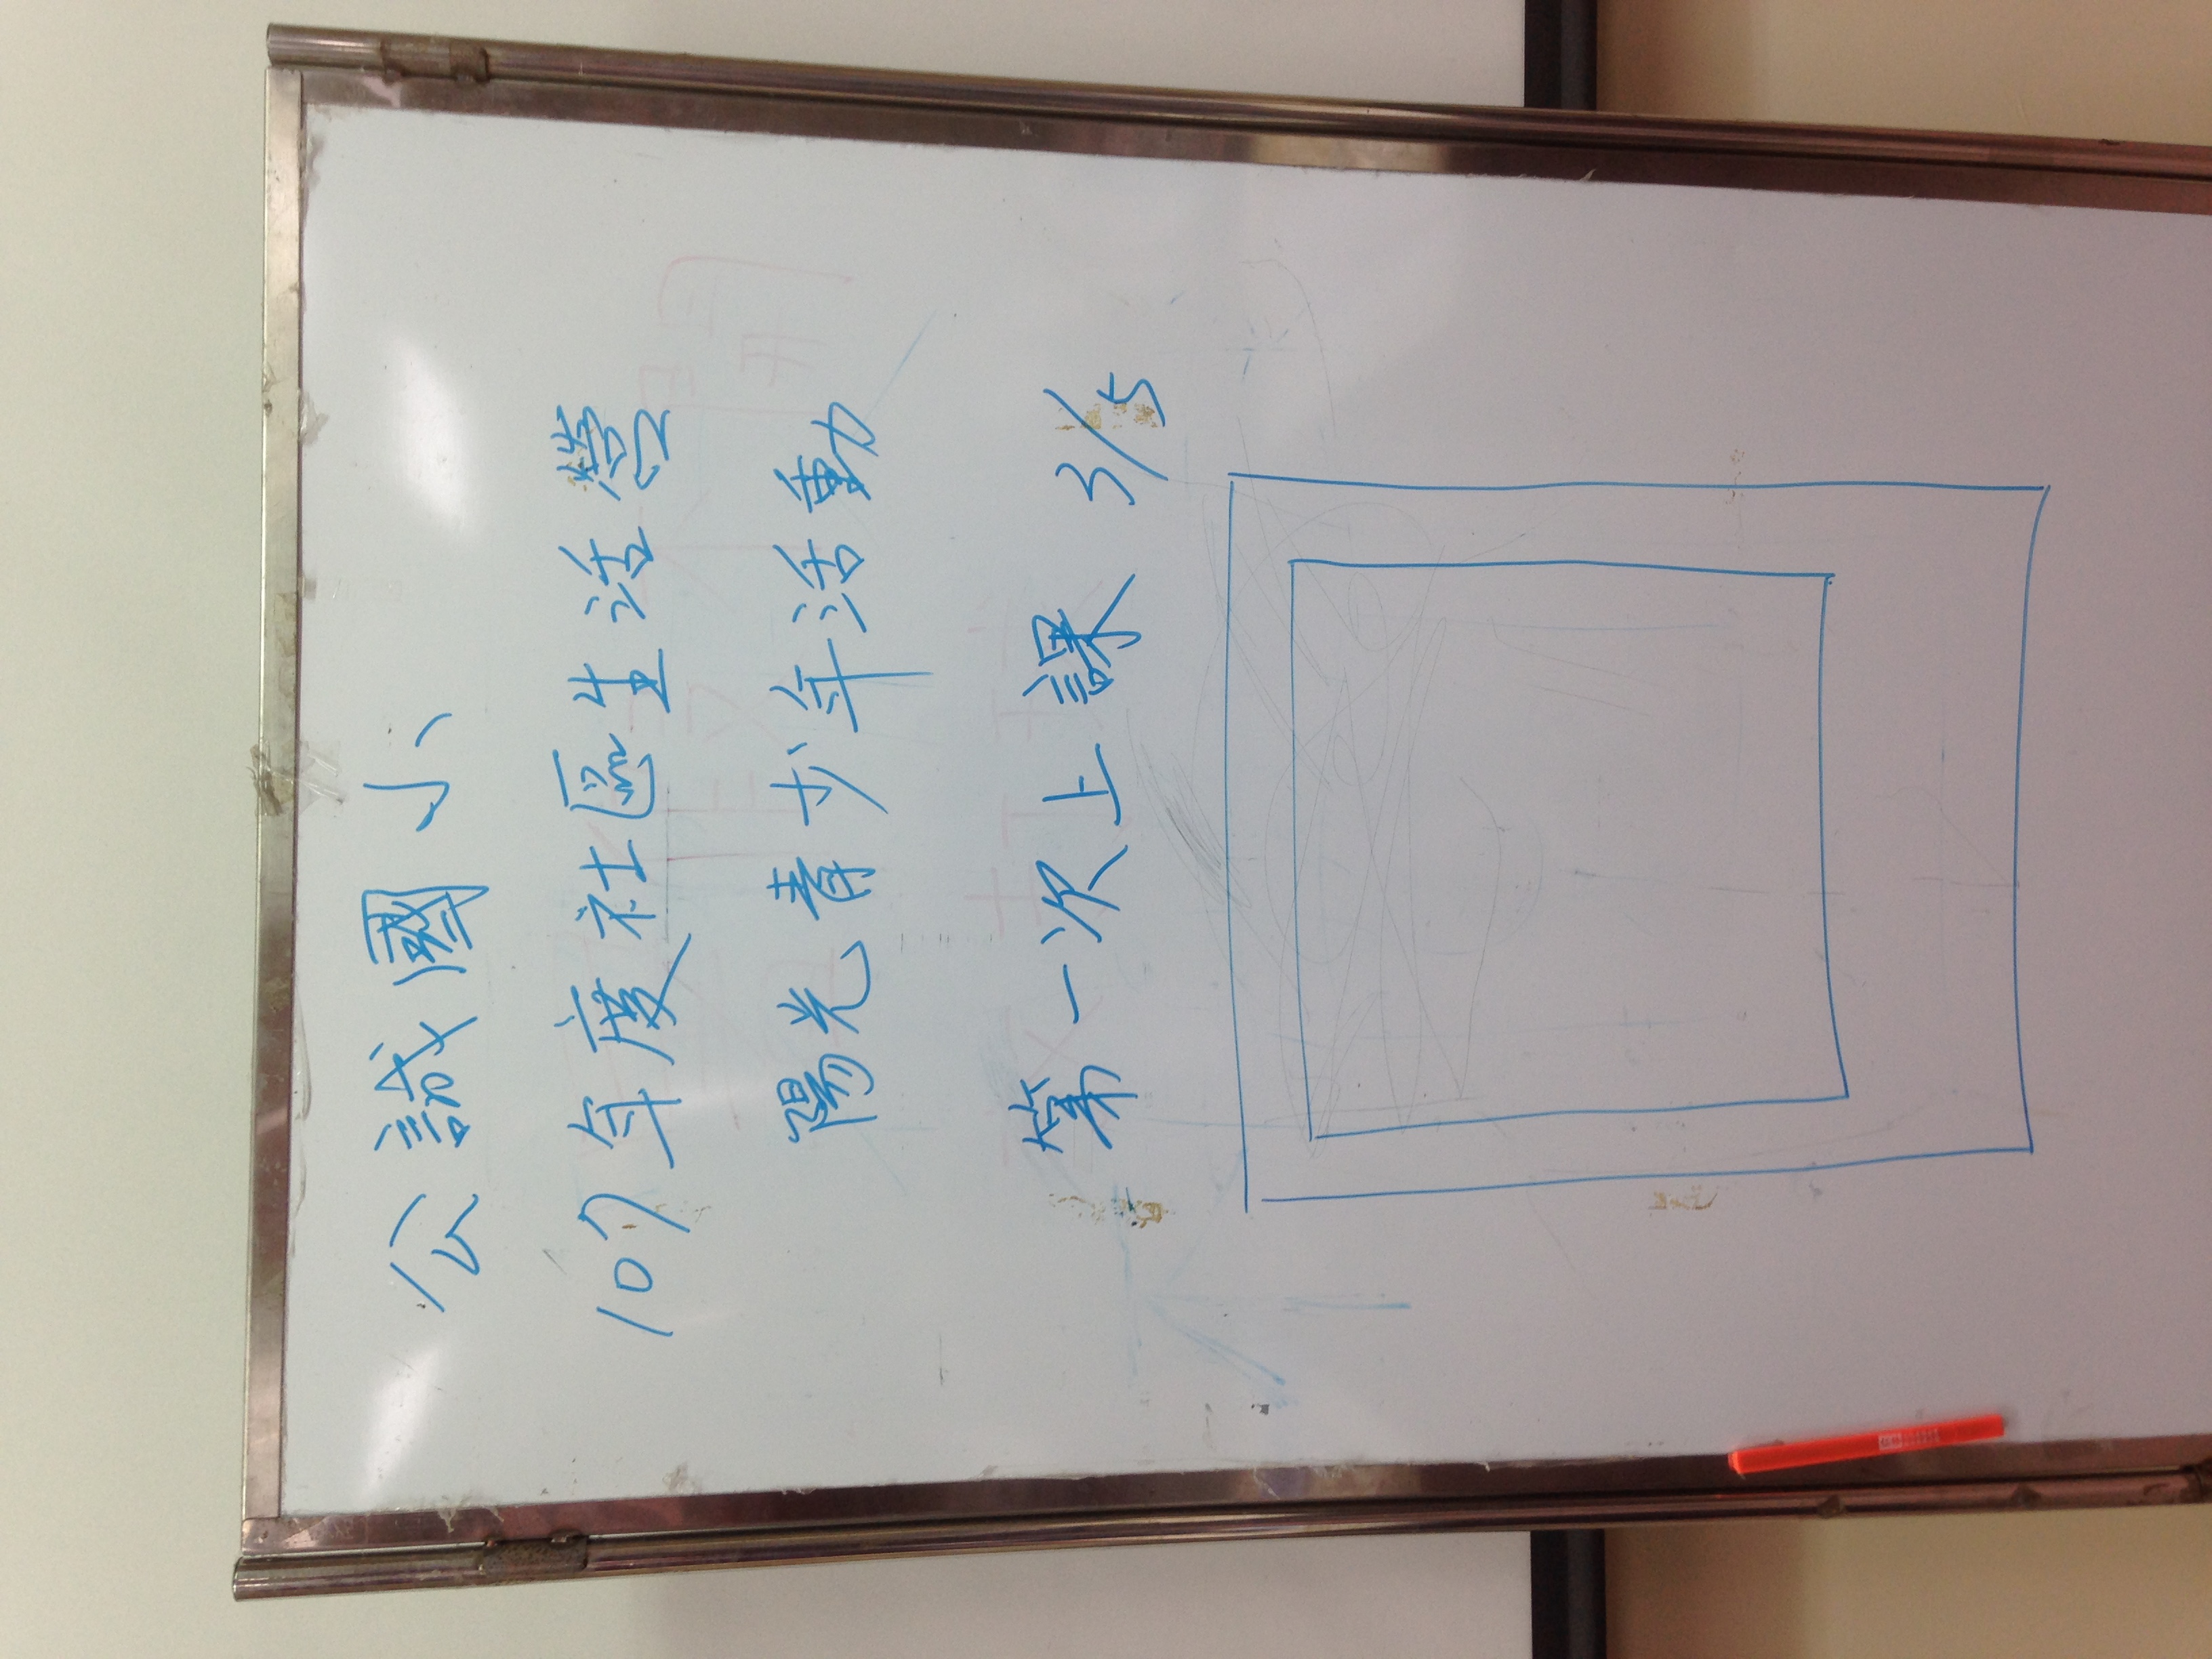 公誠國小
107年度社區生活營
陽光青少年活動
第一次上課 3/5